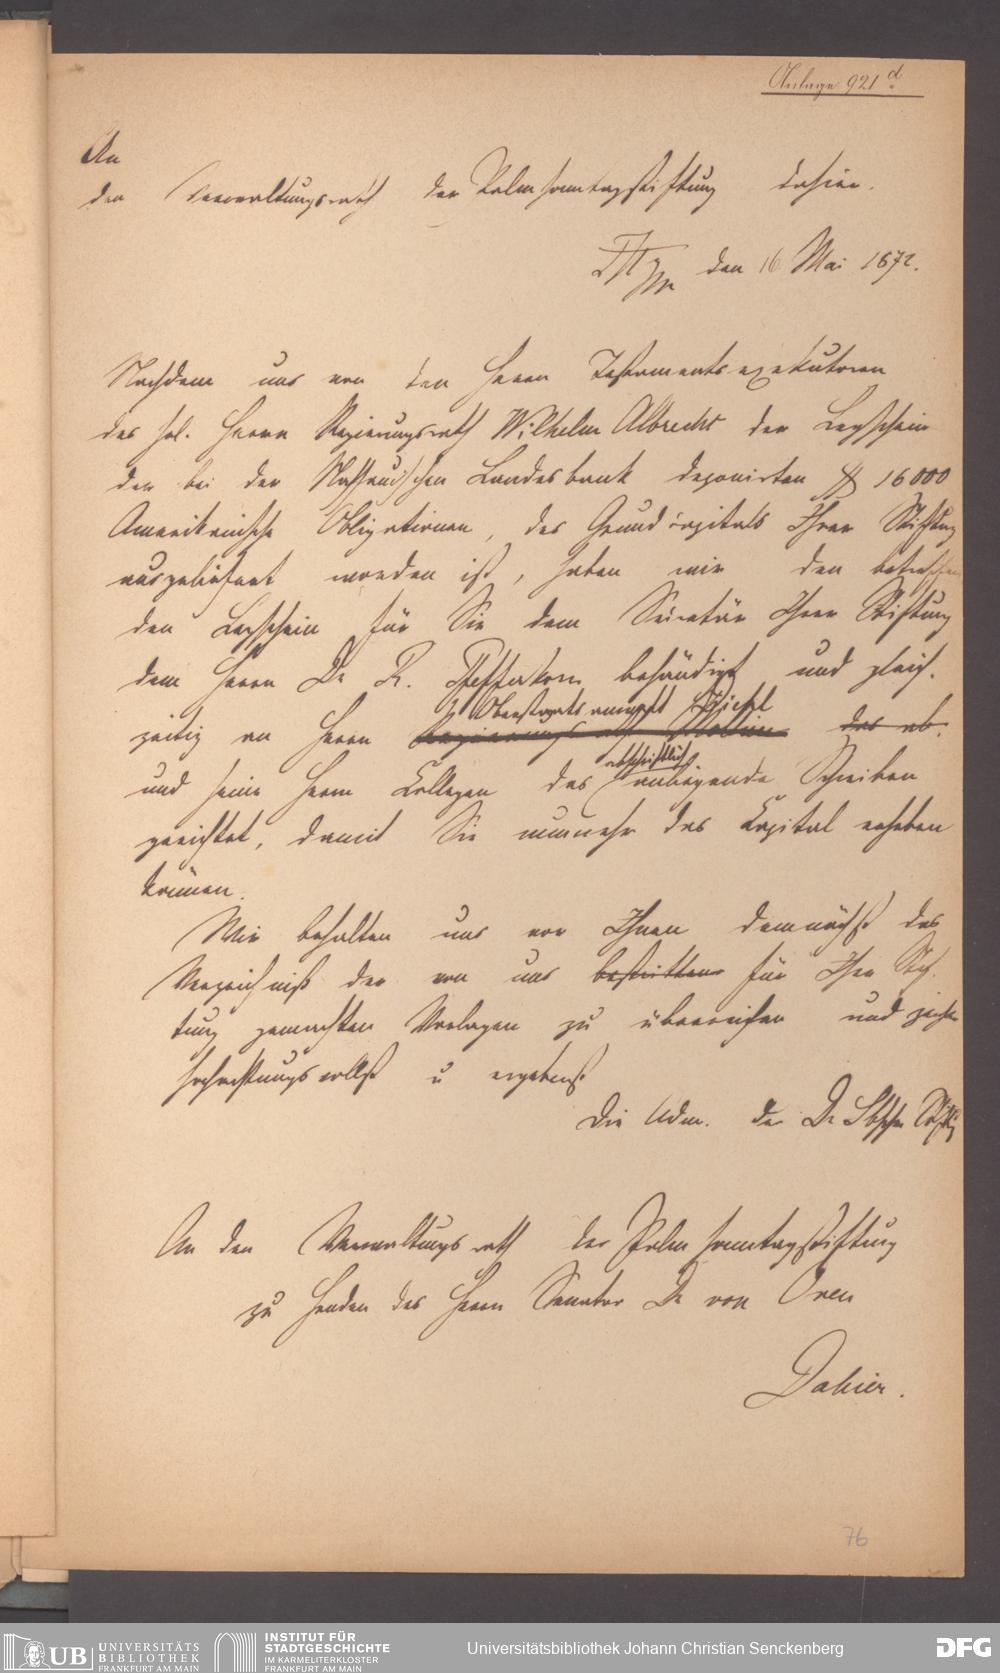 Anlage 921 d.
An
den Verwaltungsrath der Palmsonntagsstiftung dahier.
den 16 Mai 1872.
Nachdem uns von den Herrn Testamentsexekutoren
des sel. Herrn Regierungsrath Wilhelm Albrecht der Legschein
der bei der Nassauischen Landesbank deponirten 16000
Amerikanische Obligationen, des Grundcapitals Ihrer Stiftung
ausgeliefert worden ist, haben wir den betreffen
den Legschein für Sie dem Secretär Ihrer Stiftung
dem Herrn Dr R. Pfefferkorn behändigt und gleich-
zeitig an Herrn Oberstaatsanwalt das ab-
und seine Herrn Collegen das abschriftlich anliegende Schreiben
gerichtet, damit Sie nunmehr das Capital erheben
können.
Wir behalten uns vor Ihnen demnächst das
Verzeichniß der von uns bestrittenen für Ihre Stif-
tung gemachten Vorlagen zu überreichen und zeichnen
hochachtungsvollst u ergebenst
Die Adm. der Dr Sbgschen Stiftg
An den Verwaltungsrath der Palmsonntagsstiftung
zu Handen des Herrn Senator Dr von Oven
Dahier.
76
UB UNIVERSITÄTS
BIBLIOTHEK
FRANKFURT AM MAIN
INSTITUT FÜR
STADTGESCHICHTE
IM KARMELITERKLOSTER
FRANKFURT AM MAIN
Universitätsbibliothek Johann Christian Senckenberg
DFG